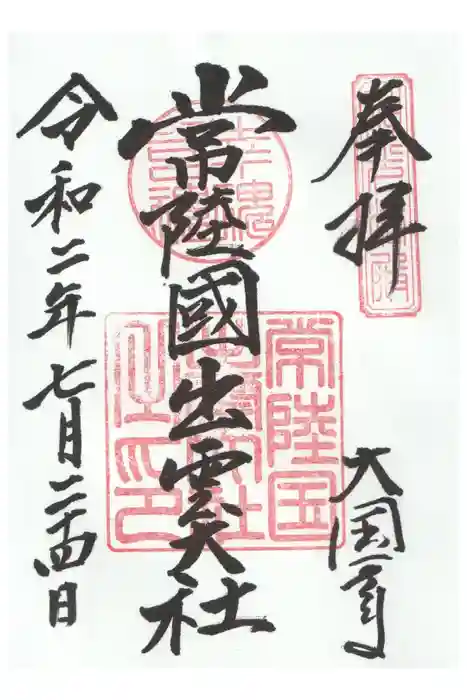 奉拝
大国
常陸國出雲大社
常陸国
令和二年七月二十四日